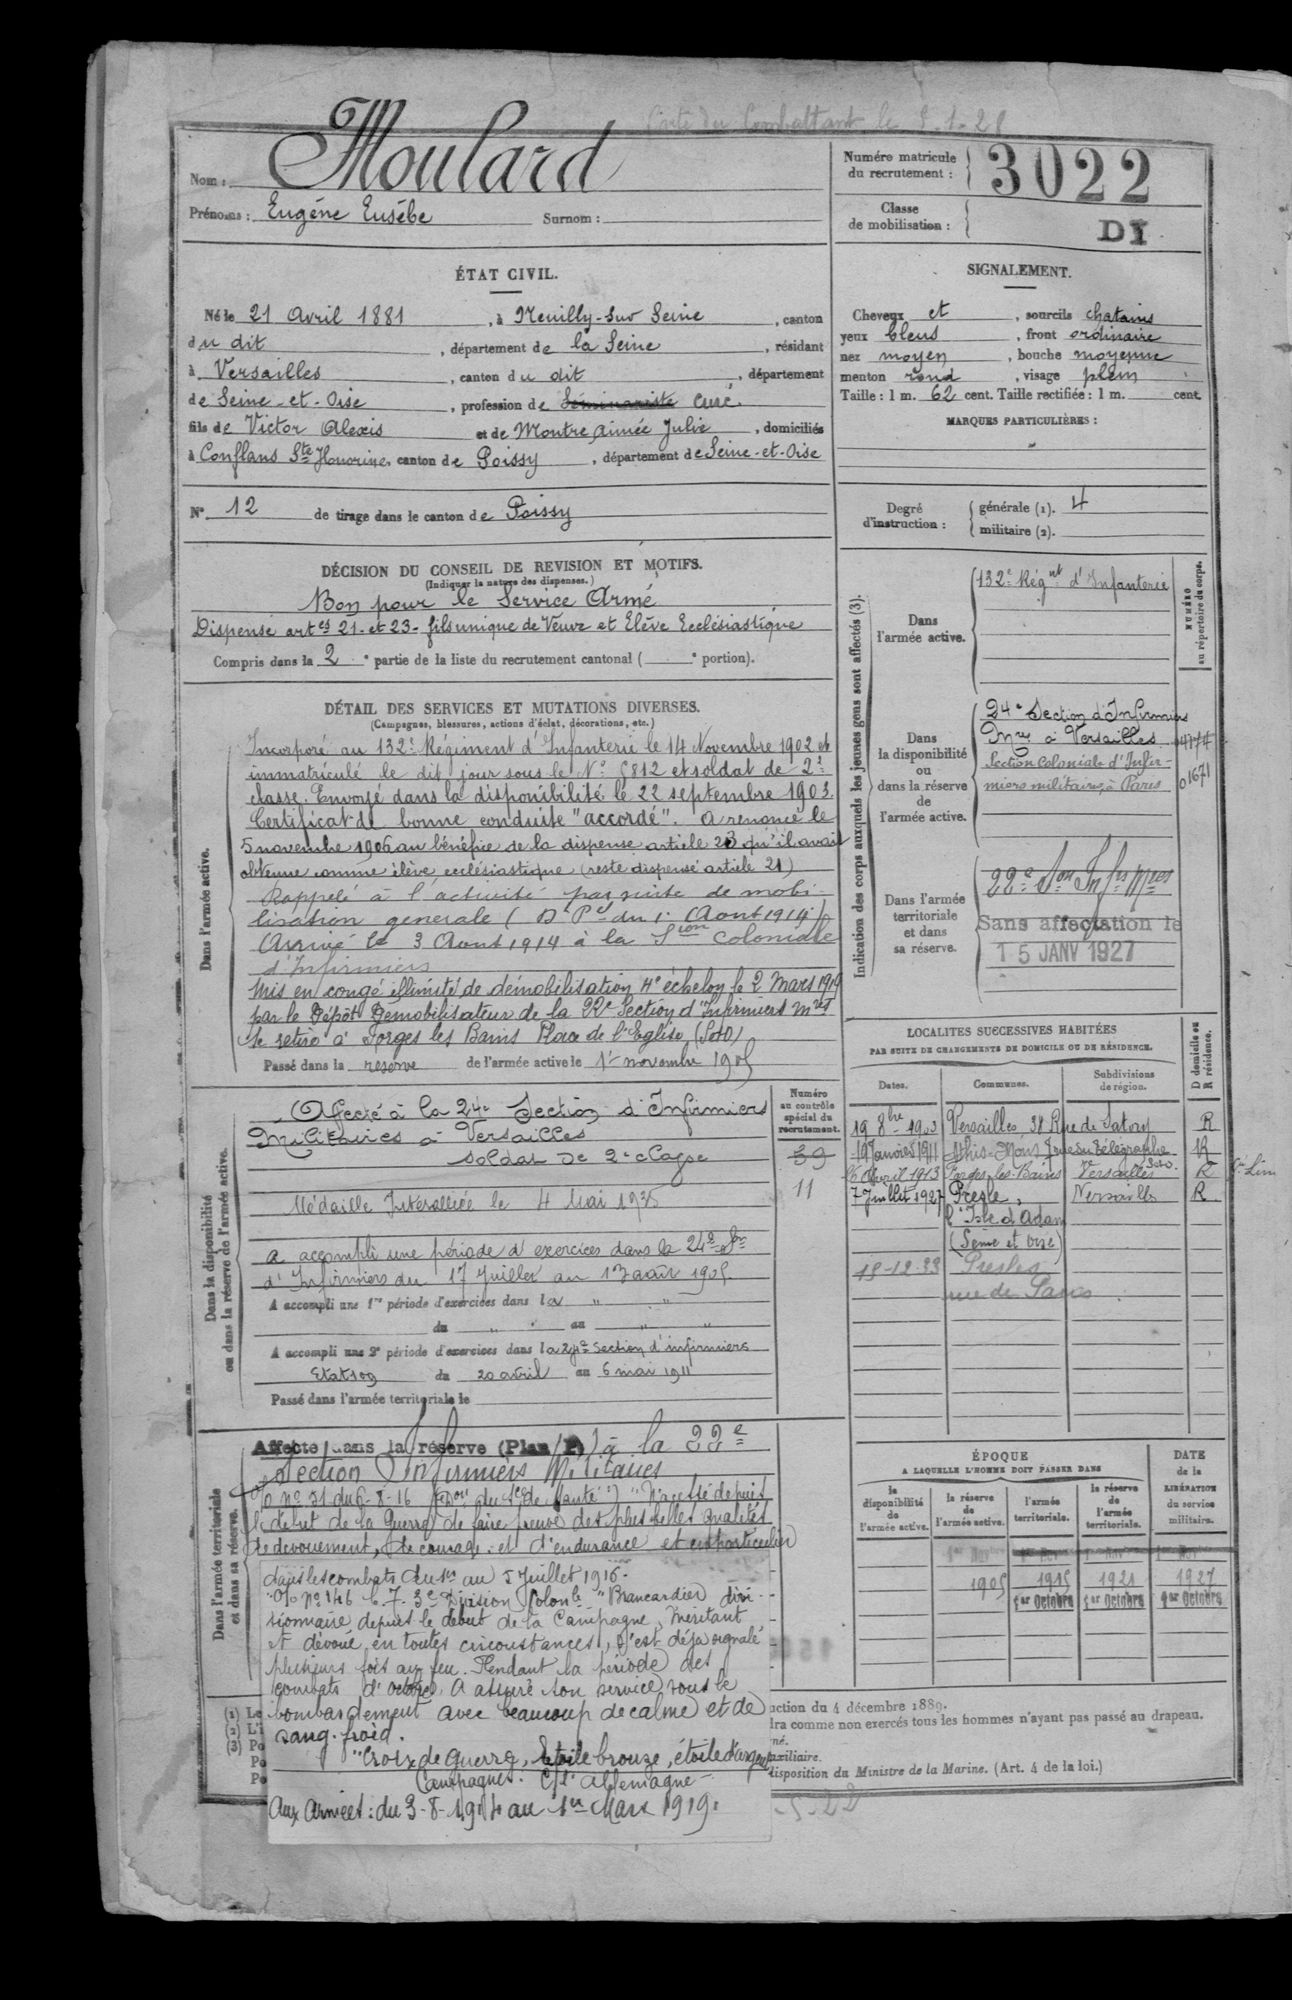 Carte du Combattant le 5-1-28
Nom : Moulard
Prénoms : Eugène Eusèbe Surnom :
Numéro matricule du recrutement : 3022
Classe de mobilisation : DI
ÉTAT CIVIL.
Né le 21 Avril 1881, à Neuilly-sur Seine, canton
du dit, département de la Seine, résidant
à Versailles, canton du dit, département
de Seine-et-Oise, profession de Séminariste Curé.
fils de Victor Alexis et de Montre Aimée Julie, domiciliés
à Conflans Ste Honorine, canton de Poissy, département de Seine-et-Oise
N° 12 de tirage dans le canton de Poissy
SIGNALEMENT.
Cheveux et, sourcils chatains
yeux bleus, front ordinaire
nez moyen, bouche moyenne
menton rond, visage plein
Taille : 1 m. 62 cent. Taille rectifiée : 1 m. cent.
MARQUES PARTICULIÈRES :
Degré d'instruction : générale (1). 4
militaire (2).
DÉCISION DU CONSEIL DE REVISION ET MOTIFS.
(Indiquer la nature des dispenses.)
Bon pour le Service Armé
Dispensé artes 21-et-23- fils unique de Veuve et Elève Ecclésiastique
Compris dans la 2e partie de la liste du recrutement cantonal ( e portion).
DÉTAIL DES SERVICES ET MUTATIONS DIVERSES.
(Campagnes, blessures, actions d'éclat, décorations, etc.)
Dans l'armée active.
Incorporé au 132e Régiment d'Infanterie le 14 Novembre 1902 et
immatriculé le dit jour sous le N° 5812 et soldat de 2e
classe. Envoyé dans la disponibilité le 22 septembre 1903.
Certificat de bonne conduite "accordé". A renoncé le
5 novembre 1906 au bénéfice de la dispense article 23 qu'il avait
obtenue comme élève ecclésiastique (reste dispensé article 21)
Rappelé à l'activité par suite de mobi-
lisation generale (Dt Pel du 1er Aout 1914)
Arrivé le 3 Aout 1914 à la Sion Coloniale
d'Infirmiers
Mis en congé illimité de démobilisation 4e échelon le 2 Mars 1919
par le Dépôt Démobilisateur de la 22e Section d'Infirmiers mres
Se retire à Forges les Bains Place de l'Eglise (S et O)
Passé dans la réserve de l'armée active le 1er novembre 1905
Indication des corps auxquels les jeunes gens sont affectés (3).
NUMÉRO au répertoire du corps.
Dans l'armée active. 132e Régnt d'Infanterie
Dans la disponibilité ou dans la réserve de l'armée active.
24e Section d'Infirmiers
Mres à Versailles 04174
Section Coloniale d'Infir-
miers militaires à Paris 01671
Dans l'armée territoriale et dans sa réserve.
22e Son Infrs Mres
Sans affectation le
15 JANV 1927
Dans la disponibilité ou dans la réserve de l'armée active.
Numéro au contrôle spécial du recrutement.
Affecté à la 24e Section d'Infirmiers
Militaires à Versailles
soldat de 2e classe
39
11
Médaille Interalliée le 4 Mai 1936
A accompli une période d'exercices dans la 24e Son
d'Infirmiers du 17 Juillet au 13 août 1905.
A accompli une 1re période d'exercices dans la " "
du " au " "
A accompli une 2e période d'exercices dans la 24e Section d'infirmiers
du 20 avril au 6 mai 1911
Passé dans l'armée territoriale le
LOCALITES SUCCESSIVES HABITÉES
PAR SUITE DE CHANGEMENTS DE DOMICILE OU DE RÉSIDENCE.
Dates. Communes. Subdivisions de région. D domicile ou R résidence.
19 8bre 1903 Versailles 38 Rue de Satory R
19 Janvier 1911 Athis-Mons rue du Télégraphe R
16 Avril 1913 Forges-les-Bains Versailles R
7 Juillet 1927 Presle, Versailles R
l'Isle d'Adam
(Seine et Oise)
15-12-33 Presles
rue de Paris
Dans l'armée territoriale et dans sa réserve.
Affecté dans la réserve (Plan P) à la 22e
Section Infirmiers Militaires
O/o No 31 du 6-8-16 du Sce de Santé : "N'a cessé depuis
le début de la Guerre de faire preuve des plus belles qualités
de dévouement, de courage et d'endurance et en particulier
dans les combats du 1er au 5 Juillet 1916.
O/o No 146 3e Division Colonle "Brancardier divi-
sionnaire depuis le début de la Campagne, méritant
et dévoué en toutes circonstances, s'est déjà signalé
plusieurs fois au feu. Pendant la période des
combats d'octobre, a assuré son service sous le
bombardement avec beaucoup de calme et de
sang-froid.
"Croix de Guerre, Etoile bronze, étoile d'argent
Campagnes: C/ l'Allemagne-
Aux Armées: du 3-8-1914 au 1er Mars 1919.
ÉPOQUE
A LAQUELLE L'HOMME DOIT PASSER DANS
la disponibilité de l'armée active.
la réserve de l'armée active.
l'armée territoriale.
la réserve de l'armée territoriale.
DATE de la LIBÉRATION du service militaire.
1905 1915 1921 1927
1er Octobre 1er Octobre 1er Octobre
(1) Le
(2) L'i
(3) Po
Po
Po
uction du 4 décembre 1889.
dra comme non exercés tous les hommes n'ayant pas passé au drapeau.
né.
uxiliaire.
disposition du Ministre de la Marine. (Art. 4 de la loi.)